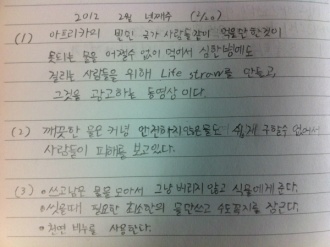 2012 2월 넷째주 (2/20)
(1) 아프리카의 빈민 국가 사람들같이 억울한 것이
못되는 물을 어쩔수 없이 먹어서 심한병에도
걸리는 사람들을 위해 Life straw를 만들고,
그것을 광고하는 동영상 이다.
(2) 깨끗한 물은 커녕 안전하지않은물도 쉽게 구할수 없어서
사람들이 피해를 보고있다.
(3) •쓰고남은 물을 모아서 그냥 버리지 않고 식물에게 준다.
•씻을때 필요한 최소한의 물만쓰고 수도꼭지를 잠근다.
•천연 비누를 사용한다.